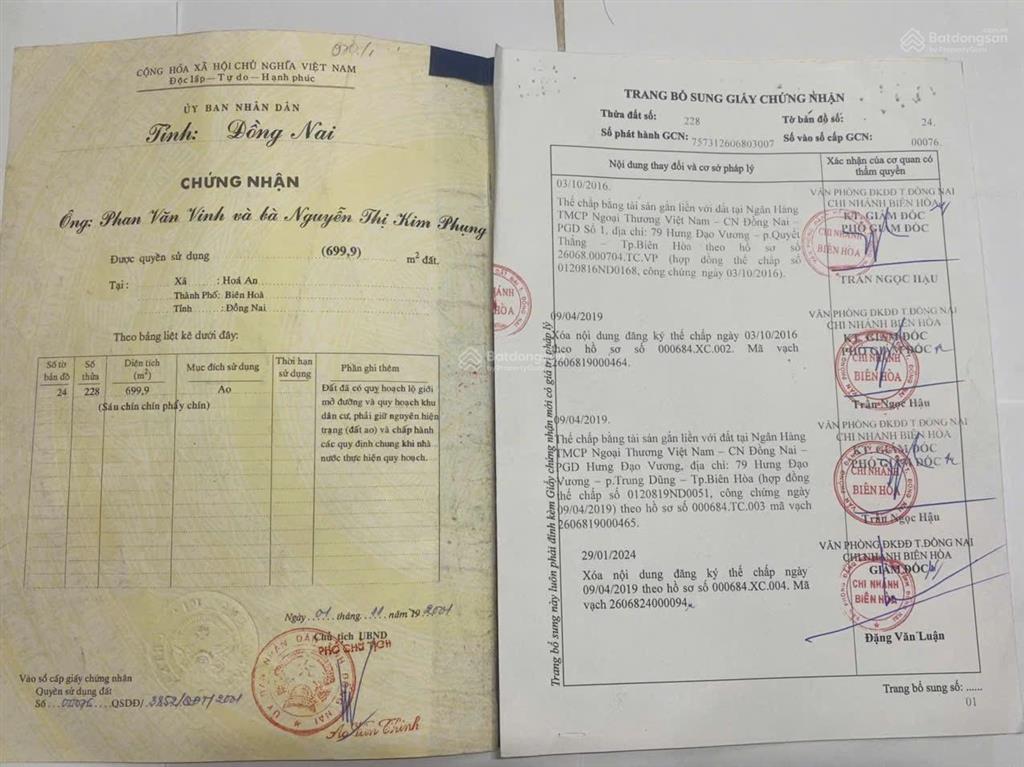 CỘNG HÒA XÃ HỘI CHỦ NGHĨA VIỆT NAM
Độc lập – Tự do – Hạnh phúc
ỦY BAN NHÂN DÂN
Tỉnh: Đồng Nai
CHỨNG NHẬN
Ông: Phan Văn Vinh và bà Nguyễn Thị Kim Phụng
Được quyền sử dụng (699,9) m² đất.
Tại : Xã : Hoá An
Thành Phố: Biên Hoà
Tỉnh : Đồng Nai
Theo bảng liệt kê dưới đây:
Số tờ bản đồ
Số thửa
Diện tích (m²)
Mục đích sử dụng
Thời hạn sử dụng
Phần ghi thêm
24 228 699,9 Ao
(Sáu chín chín phẩy chín)
Đất đã có quy hoạch lộ giới
mở đường và quy hoạch khu
dân cư, phải giữ nguyên hiện
trạng (đất ao) và chấp hành
các quy định chung khi nhà
nước thực hiện quy hoạch.
Ngày 01 tháng 11 năm 2001
Chủ tịch UBND
PHÓ CHỦ TỊCH
Vào sổ cấp giấy chứng nhận
Quyền sử dụng đất
Số 00076 QSDĐ/ 3852/QĐT/2001
Batdongsan
by PropertyGuru
TRANG BỔ SUNG GIẤY CHỨNG NHẬN
Thửa đất số: 228 Tờ bản đồ số: 24.
Số phát hành GCN: 757312606803007 Số vào sổ cấp GCN: 00076.
Nội dung thay đổi và cơ sở pháp lý
Xác nhận của cơ quan có
thẩm quyền
03/10/2016.
Thế chấp bằng tài sản gắn liền với đất tại Ngân Hàng
TMCP Ngoại Thương Việt Nam – CN Đồng Nai –
PGD Số 1, địa chỉ: 79 Hưng Đạo Vương – p.Quyết
Thắng – Tp.Biên Hòa theo hồ sơ số
26068.000704.TC.VP (hợp đồng thế chấp số
0120816NĐ0168, công chứng ngày 03/10/2016).
VĂN PHÒNG ĐKĐĐ T.ĐỒNG NAI
CHI NHÁNH BIÊN HÒA
KT.GIÁM ĐỐC
PHÓ GIÁM ĐỐC
CHI NHÁNH
BIÊN HÒA
TRẦN NGỌC HẬU
09/04/2019
Xóa nội dung đăng ký thế chấp ngày 03/10/2016
theo hồ sơ số 000684.XC.002. Mã vạch
2606819000464.
VĂN PHÒNG ĐKĐĐ T.ĐỒNG NAI
CHI NHÁNH BIÊN HÒA
KT.GIÁM ĐỐC
PHÓ GIÁM ĐỐC
CHI NHÁNH
BIÊN HÒA
Trần Ngọc Hậu
09/04/2019.
Thế chấp bằng tài sản gắn liền với đất tại Ngân Hàng
TMCP Ngoại Thương Việt Nam – CN Đồng Nai –
PGD Hưng Đạo Vương, địa chỉ: 79 Hưng Đạo
Vương – p.Trung Dũng – Tp.Biên Hòa (hợp đồng
thế chấp số 0120819NĐ0051, công chứng ngày
09/04/2019) theo hồ sơ số 000684.TC.003 mã vạch
2606819000465.
VĂN PHÒNG ĐKĐĐ T.ĐỒNG NAI
CHI NHÁNH BIÊN HÒA
KT.GIÁM ĐỐC
PHÓ GIÁM ĐỐC
CHI NHÁNH
BIÊN HÒA
Trần Ngọc Hậu
29/01/2024
Xóa nội dung đăng ký thế chấp ngày
09/04/2019 theo hồ sơ số 000684.XC.004. Mã
vạch 2606824000094.
VĂN PHÒNG ĐKĐĐ T.ĐỒNG NAI
CHI NHÁNH BIÊN HÒA
GIÁM ĐỐC
CHI NHÁNH
BIÊN HÒA
Đặng Văn Luận
Trang bổ sung này luôn phải đính kèm Giấy chứng nhận mới có giá trị pháp lý
Trang bổ sung số: ......
01